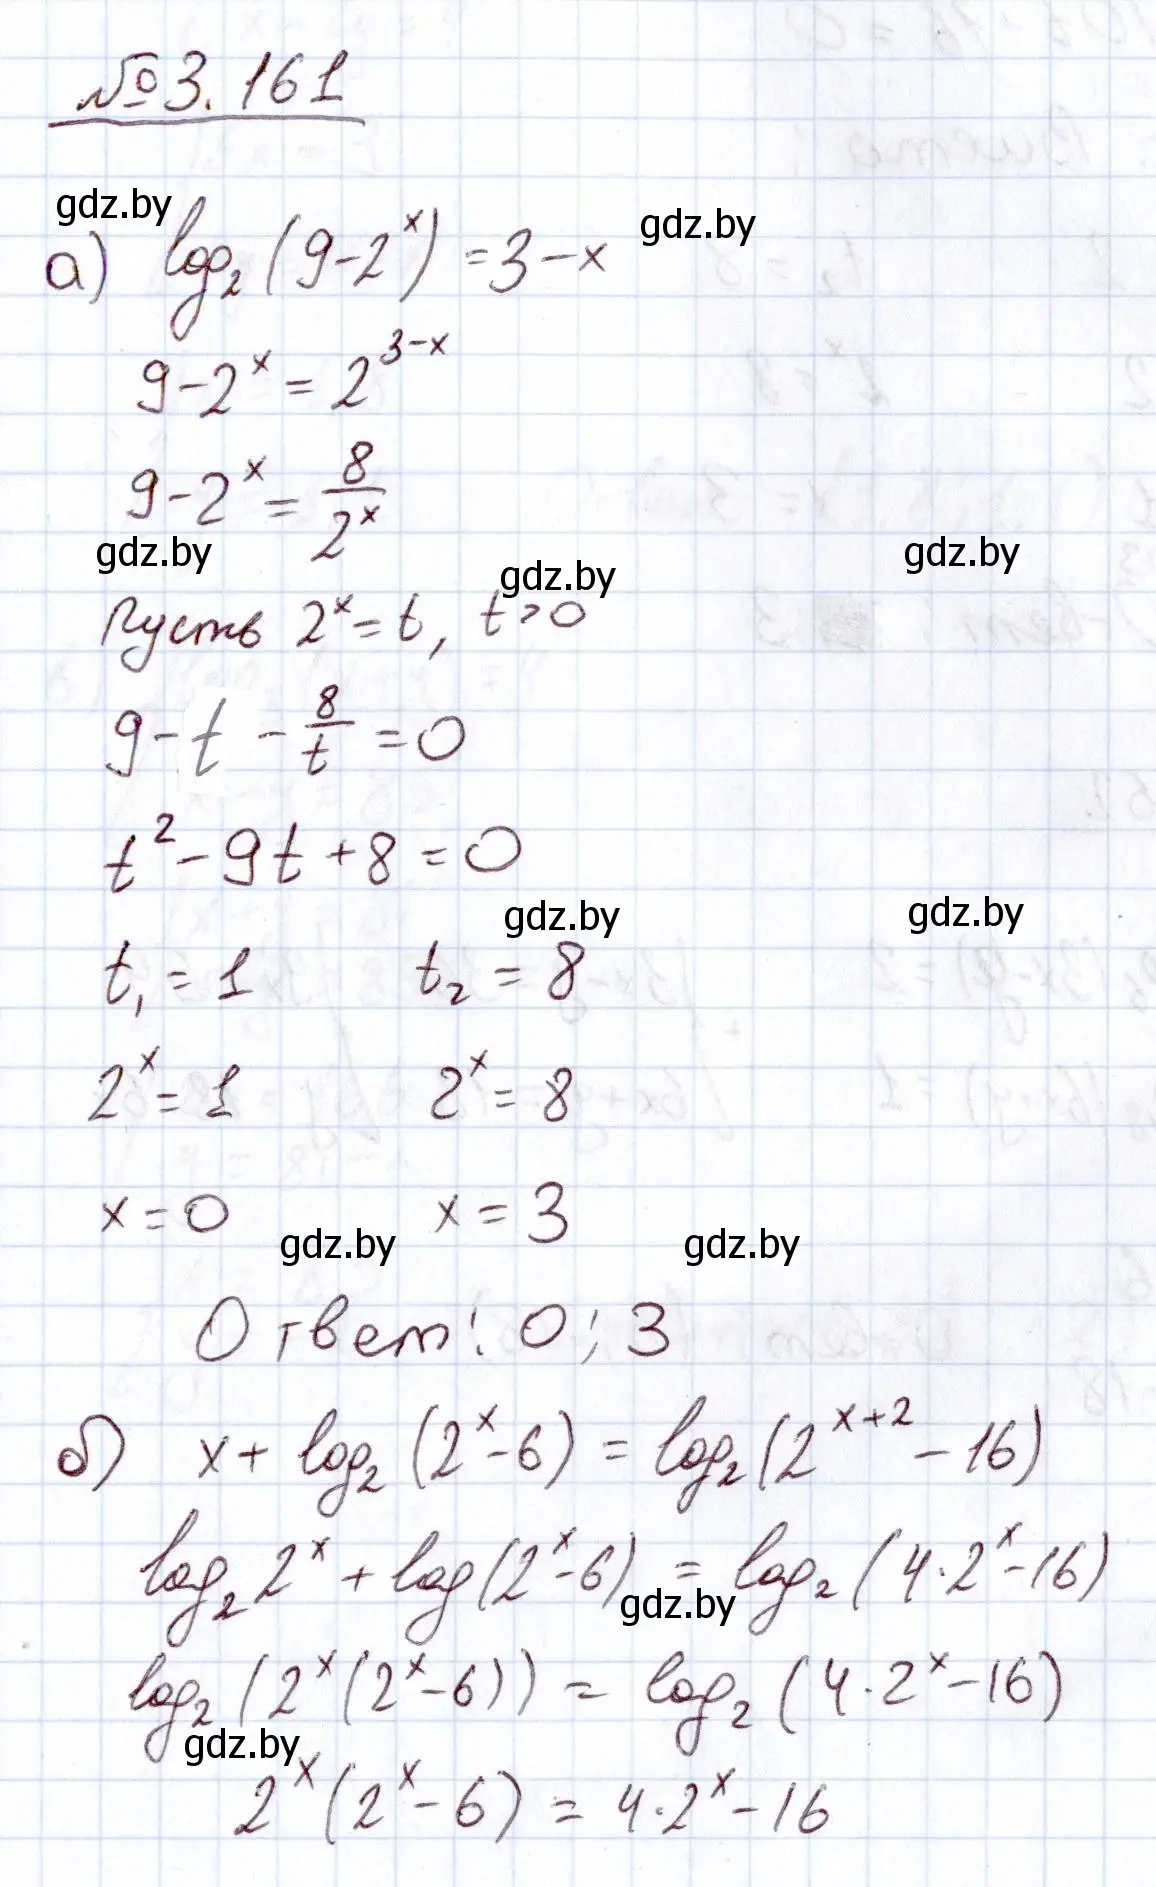 №3.161
gdz.by
gdz.by
а) log₂(9-2ˣ)=3-x
9-2ˣ=2³⁻ˣ
9-2ˣ=8/2ˣ
gdz.by
gdz.by
gdz.by
Пусть 2ˣ=t, t>0
9-t-8/t=0
t²-9t+8=0
gdz.by
gdz.by
t₁=1 t₂=8
2ˣ=1 2ˣ=8
x=0 x=3
gdz.by
gdz.by
Ответ: 0; 3
б) x+log₂(2ˣ-6)=log₂(2ˣ⁺²-16)
log₂2ˣ+log(2ˣ-6)=log₂(4·2ˣ-16)
gdz.by
log₂(2ˣ(2ˣ-6))=log₂(4·2ˣ-16)
gdz.by
2ˣ(2ˣ-6)=4·2ˣ-16